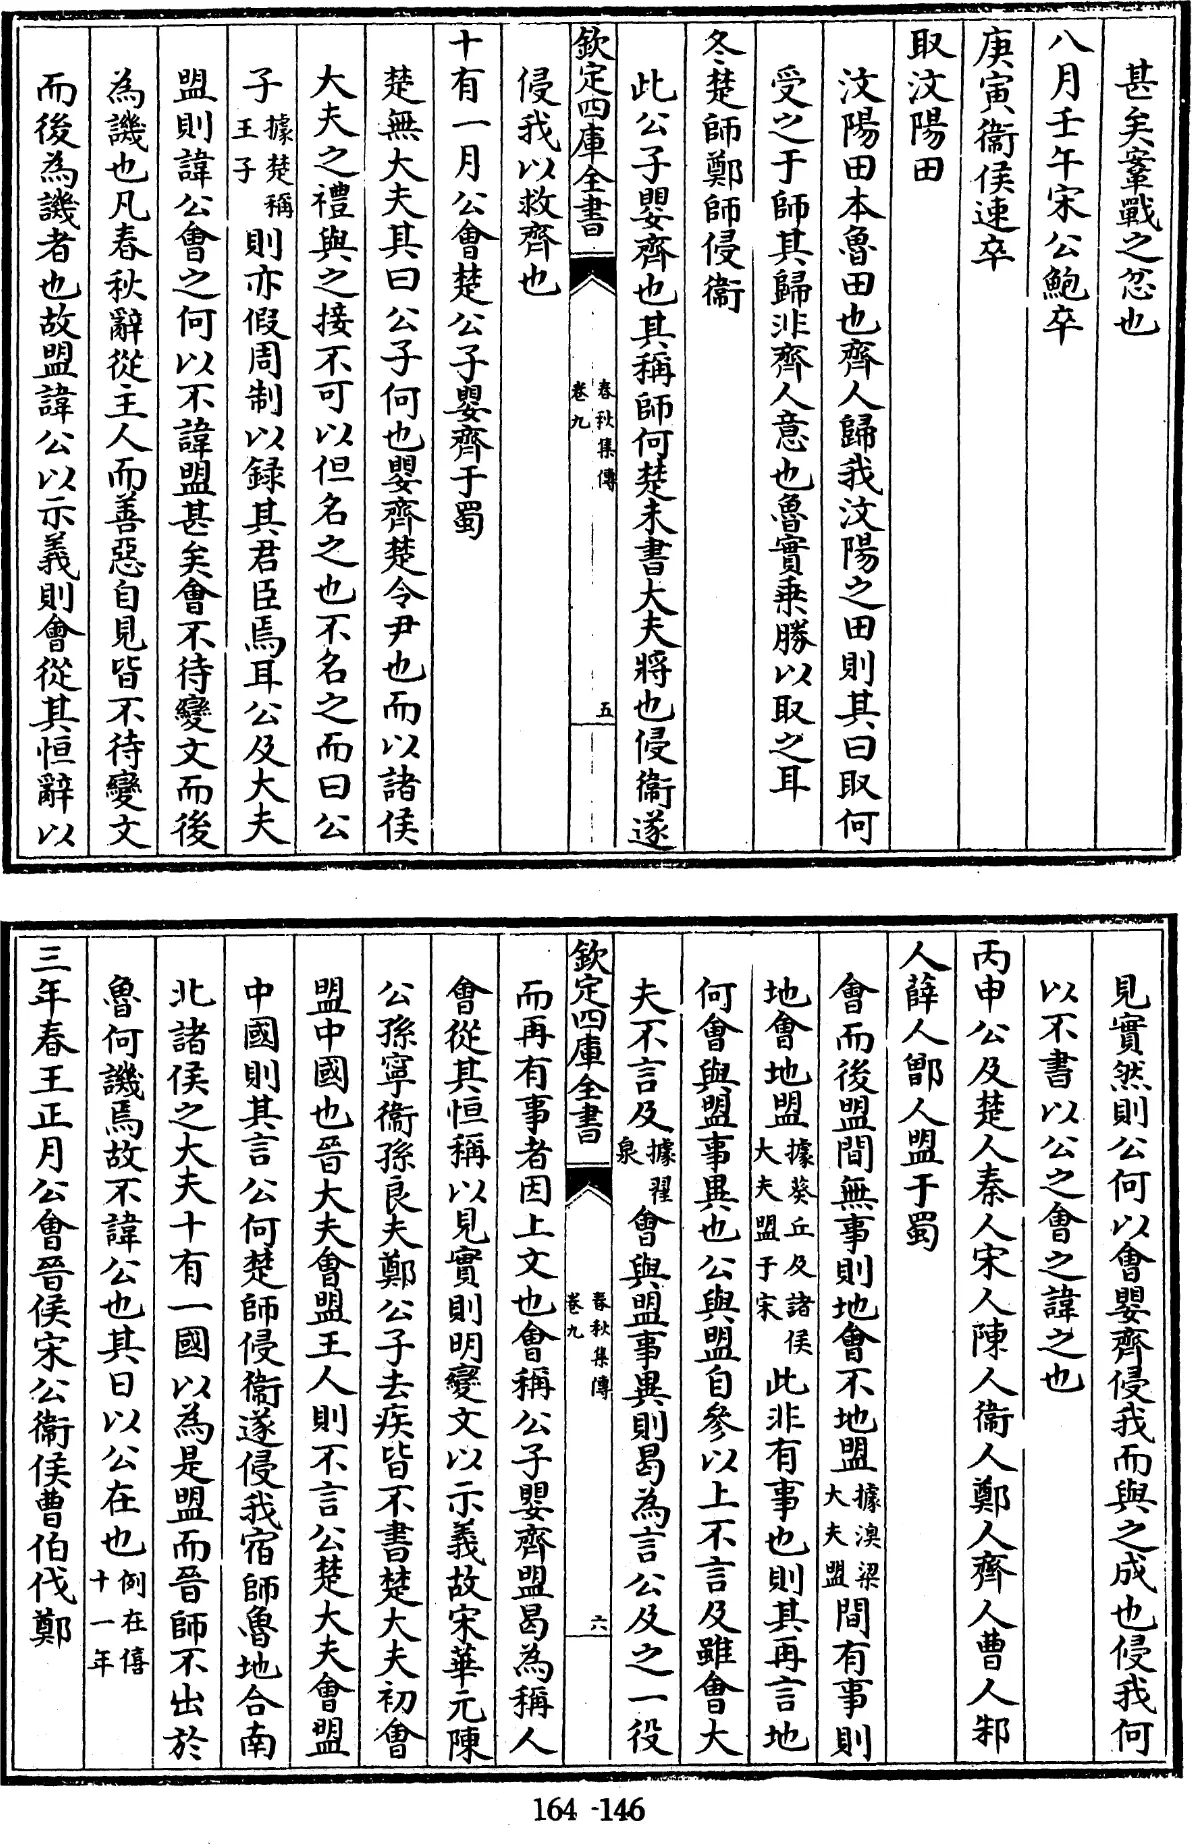 甚矣鞌戰之忿也
八月壬午宋公鮑卒
庚寅衛侯速卒
取汶陽田
汶陽田本魯田也齊人歸我汶陽之田則其曰取何
受之于師其歸非齊人意也魯實乗勝以取之耳
冬楚師鄭師侵衛
此公子嬰齊也其稱師何楚未書大夫將也侵衛遂
欽定四庫全書
春秋集傳
卷九
五
侵我以救齊也
十有一月公會楚公子嬰齊于蜀
楚無大夫其曰公子何也嬰齊楚令尹也而以諸侯
大夫之禮與之接不可以但名之也不名之而曰公
子據楚稱王子則亦假周制以録其君臣焉耳公及大夫
盟則諱公會之何以不諱盟甚矣會不待變文而後
為譏也凡春秋辭從主人而善惡自見皆不待變文
而後為譏者也故盟諱公以示義則會從其恒辭以
見實然則公何以會嬰齊侵我而與之成也侵我何
以不書以公之會之諱之也
丙申公及楚人秦人宋人陳人衛人鄭人齊人曹人邾
人薛人鄫人盟于蜀
會而後盟間無事則地會不地盟據湨梁大夫盟間有事則
地會地盟據葵丘及諸侯大夫盟于宋此非有事也則其再言地
何會與盟事異也公與盟自參以上不言及雖會大
夫不言及據翟泉會與盟事異則曷為言公及之一役
欽定四庫全書
春秋集傳
卷九
六
而再有事者因上文也會稱公子嬰齊盟曷為稱人
會從其恒稱以見實則明變文以示義故宋華元陳
公孫寧衛孫良夫鄭公子去疾皆不書楚大夫初會
盟中國也晉大夫會盟王人則不言公楚大夫會盟
中國則其言公何楚師侵衛遂侵我宿師魯地合南
北諸侯之大夫十有一國以為是盟而晉師不出於
魯何譏焉故不諱公也其日以公在也例在僖十一年
三年春王正月公會晉侯宋公衛侯曹伯伐鄭
164-146